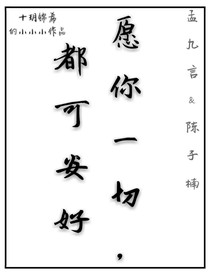 十玥锦焉
的小小小作品
愿你一切，
都可安好
孟九言&陈子楠